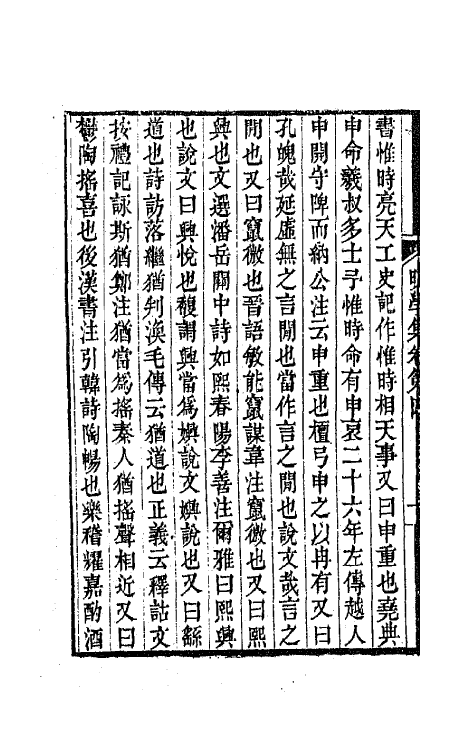 書惟時亮天工史記作惟時相天事又曰申重也堯典
申命羲叔多士予惟時命有申哀二十六年左傳越人
申開守陴而納公注云申重也檀弓申之以冉有又曰
孔魄哉延虛無之言閒也當作言之閒也說文哉言之
閒也又曰竄微也晉語敏能竄謀韋注竄微也又曰熙
興也文選潘岳關中詩如熙春陽李善注爾雅曰熙興
也說文曰興悅也馥謂興當爲嬹說文嬹說也又曰繇
道也詩訪落繼猶判渙毛傳云猶道也正義云釋詁文
按禮記詠斯猶鄭注猶當爲搖秦人猶搖聲相近又曰
鬱陶搖喜也後漢書注引韓詩陶暢也樂稽耀嘉酌酒
集卷第四